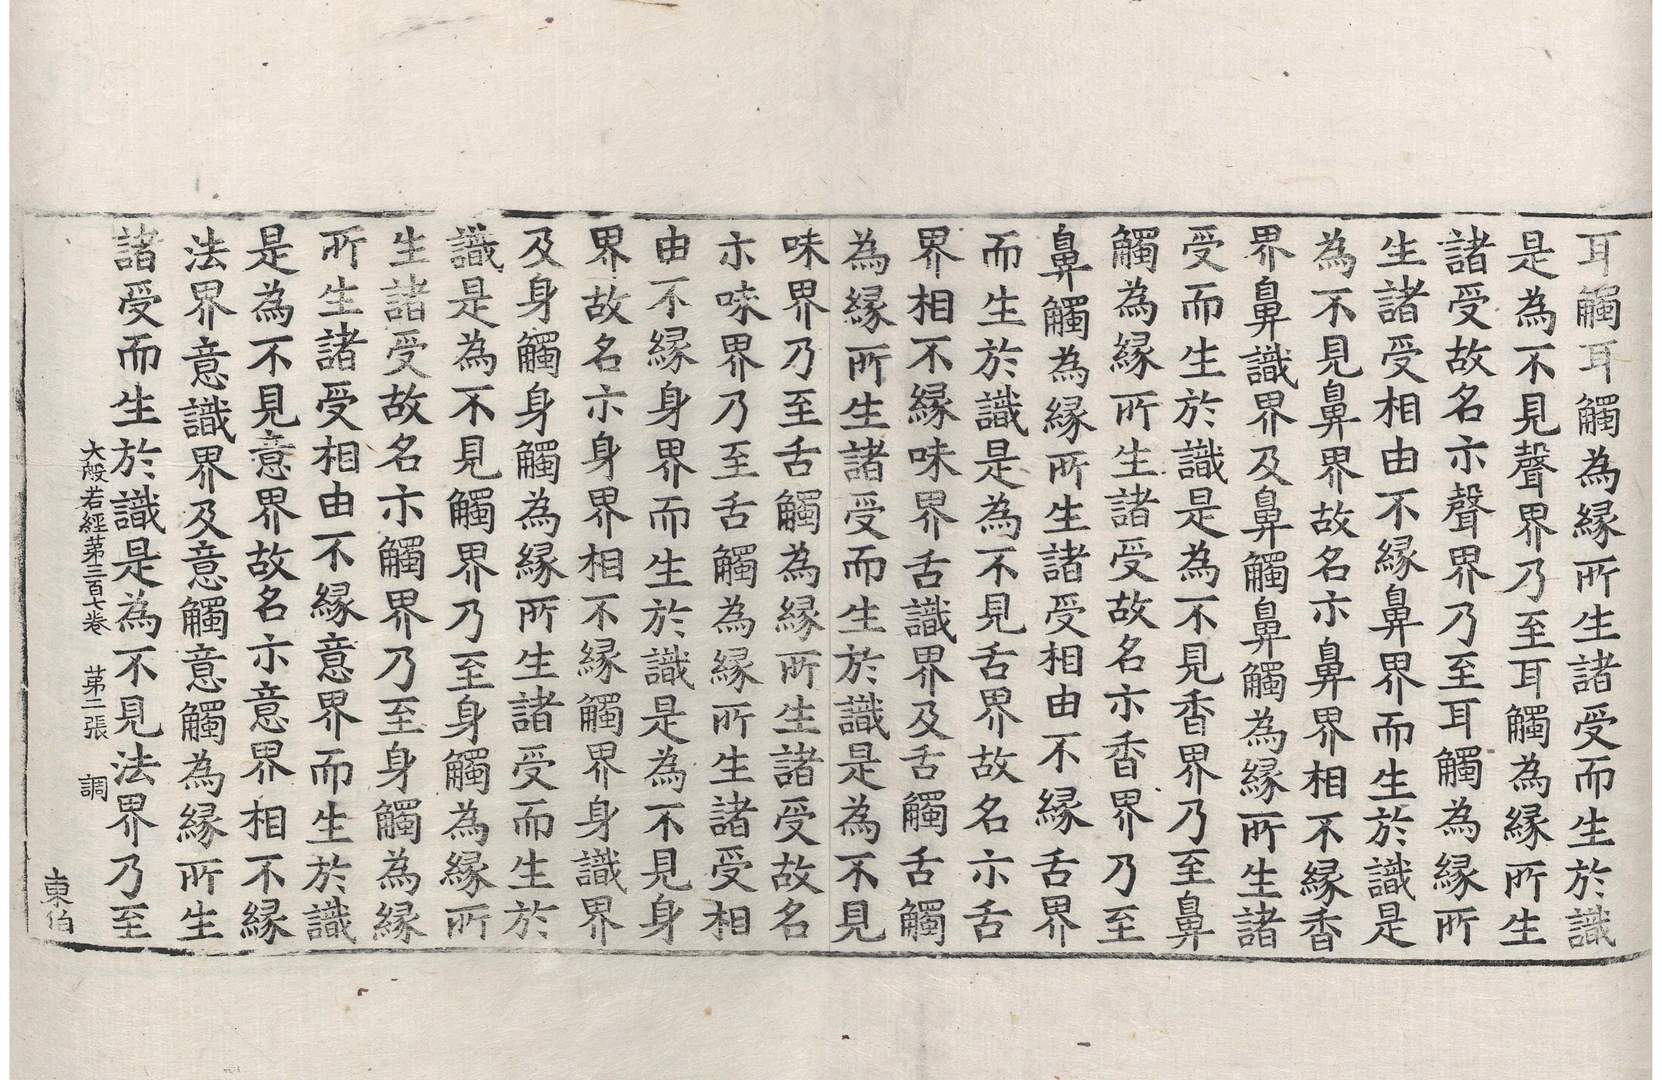 耳觸耳觸為縁所生諸受而生於識
是為不見聲界乃至耳觸為縁所生
諸受故名示聲界乃至耳觸為縁所
生諸受相由不縁鼻界而生於識是
為不見鼻界故名示鼻界相不縁香
界鼻識界及鼻觸鼻觸為縁所生諸
受而生於識是為不見香界乃至鼻
觸為縁所生諸受故名示香界乃至
鼻觸為縁所生諸受相由不縁舌界
而生於識是為不見舌界故名示舌
界相不縁味界舌識界及舌觸舌觸
為縁所生諸受而生於識是為不見
味界乃至舌觸為縁所生諸受故名
示味界乃至舌觸為縁所生諸受相
由不縁身界而生於識是為不見身
界故名示身界相不縁觸界身識界
及身觸身觸為縁所生諸受而生於
識是為不見觸界乃至身觸為縁所
生諸受故名示觸界乃至身觸為縁
所生諸受相由不縁意界而生於識
是為不見意界故名示意界相不縁
法界意識界及意觸意觸為縁所生
諸受而生於識是為不見法界乃至
大般若經苐三百七卷 苐二張 調
東伯